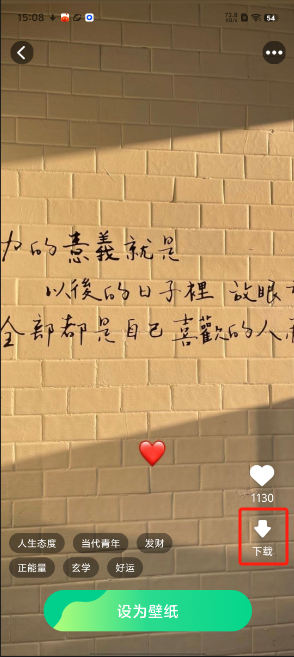 15:08
54
力的意義就是
以後的日子裡 放眼
全部都是自己喜歡的人
1130
下载
人生态度 当代青年 发财
正能量 玄学 好运
设为壁纸